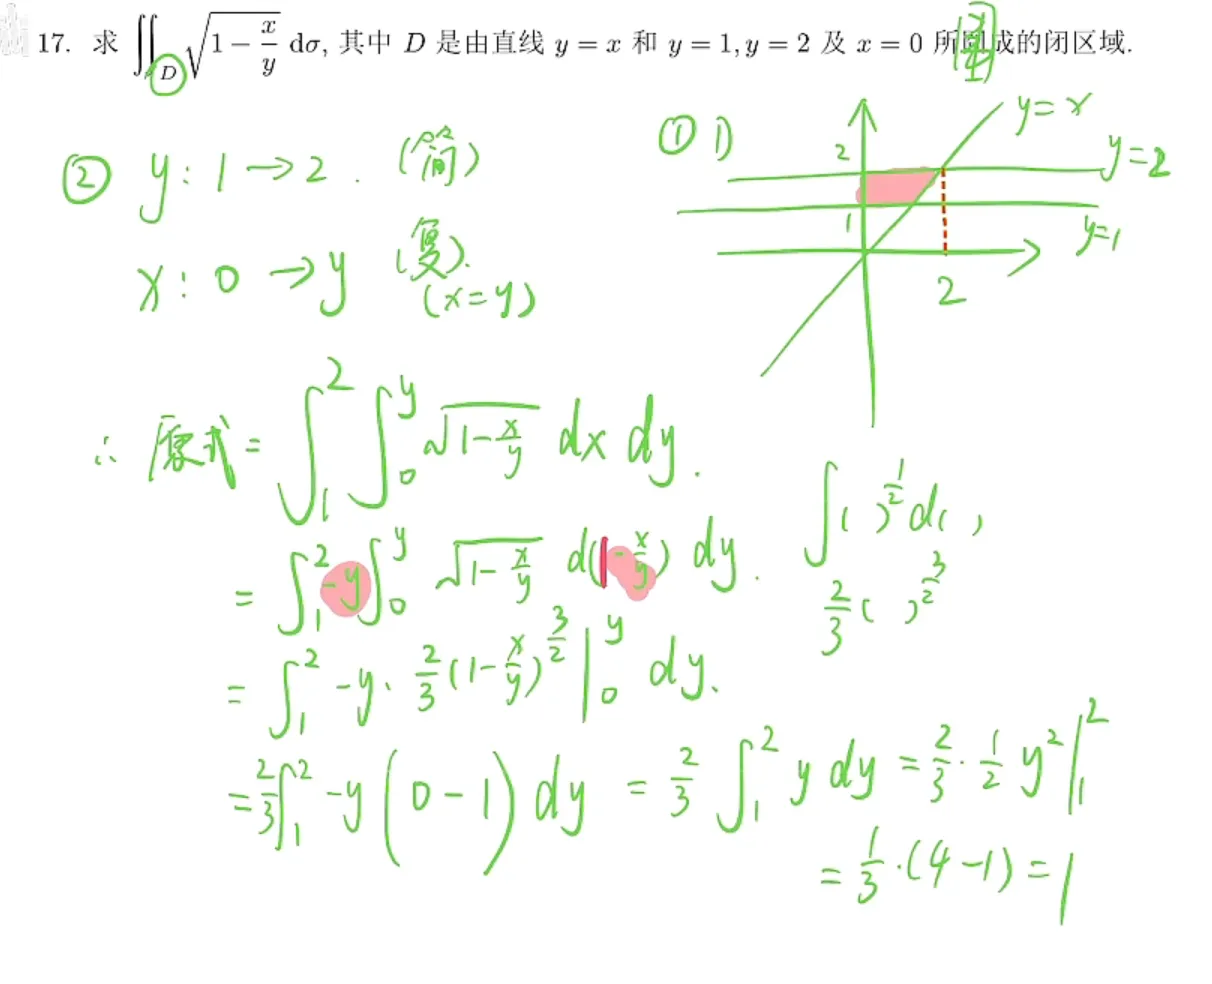 17. 求 ∬_D √(1 − x/y) dσ, 其中 D 是由直线 y = x 和 y = 1, y = 2 及 x = 0 所围成的闭区域.
① D
y = x
y = 2
2
1
y=1
2
② y : 1 → 2 . (简)
x : 0 → y (复).
(x = y)
∴ 原式 = ∫₁² ∫₀^y √(1 − x/y) dx dy .
= ∫₁² −y ∫₀^y √(1 − x/y) d(1 − x/y) dy .
∫ ( )^(1/2) d( )
2/3 ( )^(3/2)
= ∫₁² −y · 2/3 (1 − x/y)^(3/2) |₀^y dy .
= 2/3 ∫₁² −y (0 − 1) dy = 2/3 ∫₁² y dy = 2/3 · 1/2 y² |₁²
= 1/3 · (4 − 1) = 1